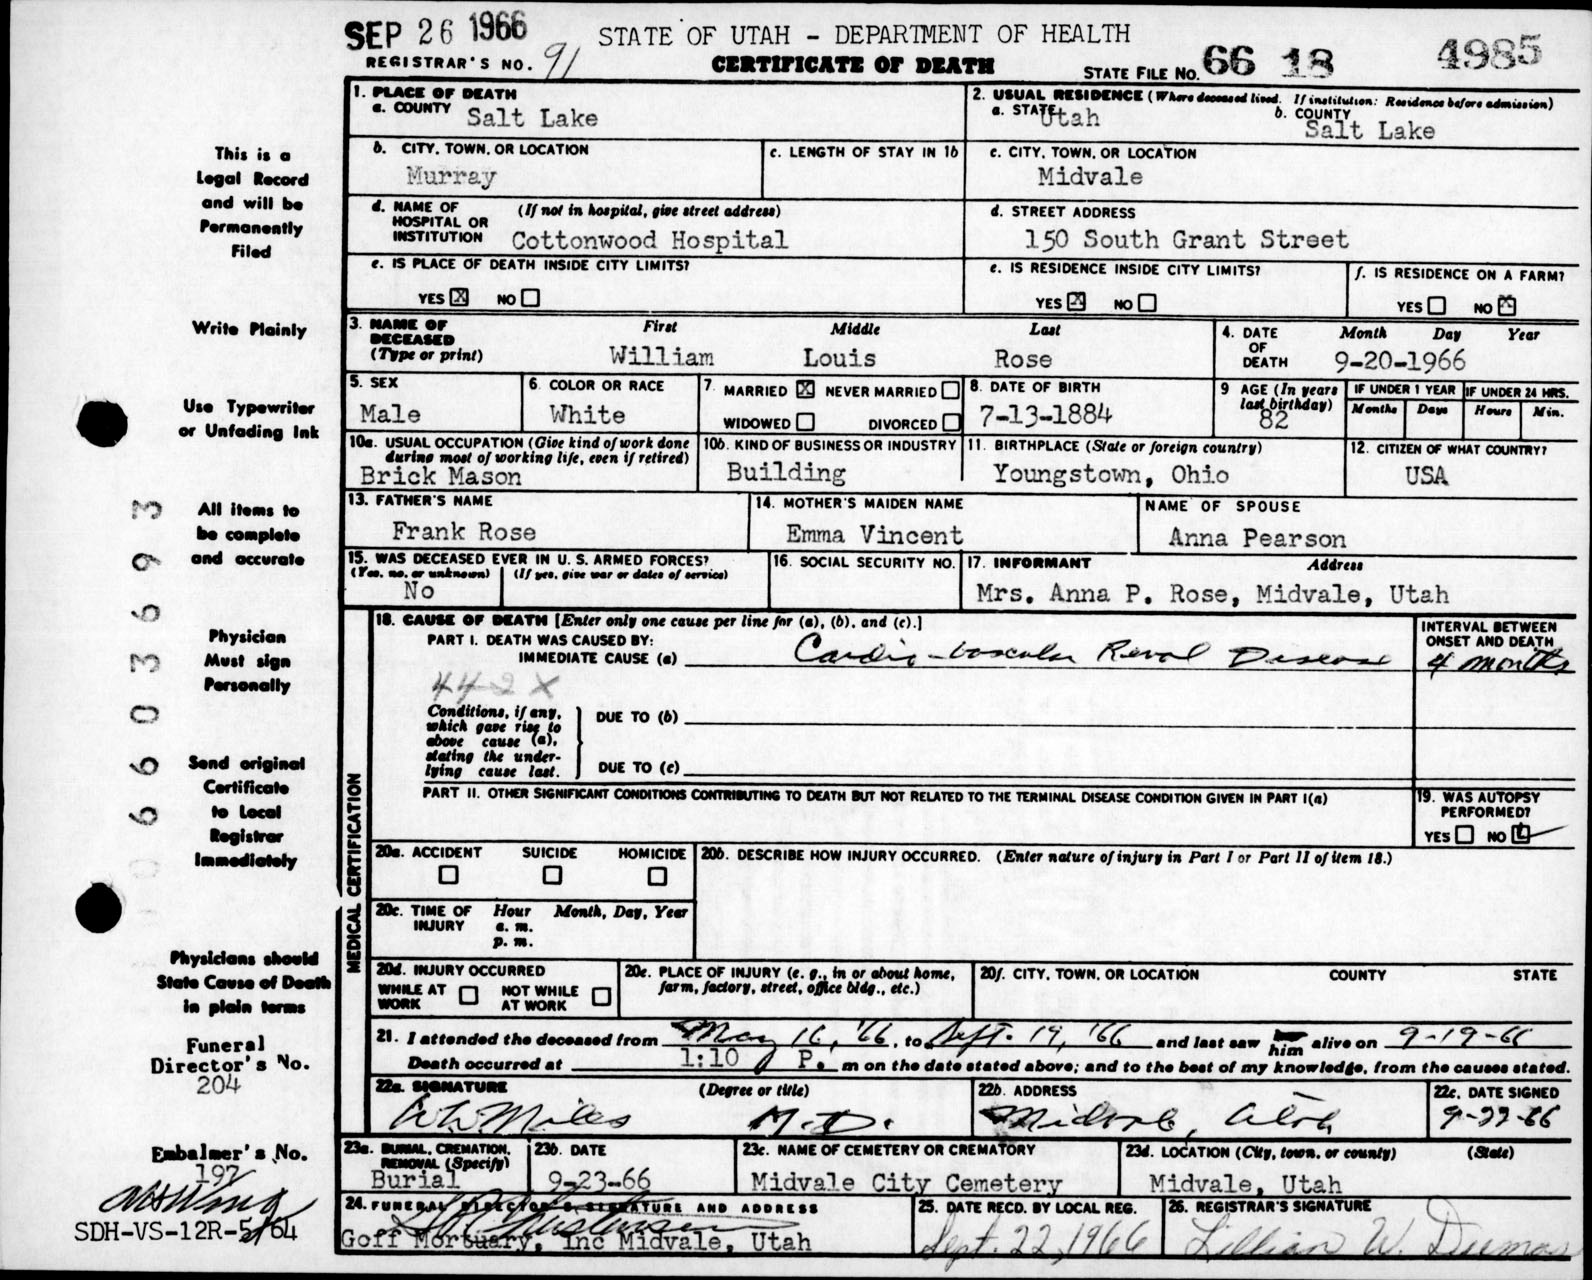 SEP 26 1966
STATE OF UTAH - DEPARTMENT OF HEALTH
REGISTRAR'S NO. 91
CERTIFICATE OF DEATH
STATE FILE NO. 66 18 4985
This is a
Legal Record
and will be
Permanently
Filed
Write Plainly
Use Typewriter
or Unfading Ink
All items to
be complete
and accurate
Physician
Must sign
Personally
Send original
Certificate
to Local
Registrar
Immediately
Physicians should
State Cause of Death
in plain terms
Funeral
Director's No.
204
Embalmer's No.
197
SDH-VS-12R-5/64
6603693
1. PLACE OF DEATH
a. COUNTY Salt Lake
2. USUAL RESIDENCE (Where deceased lived. If institution: Residence before admission)
a. STATE Utah b. COUNTY Salt Lake
b. CITY, TOWN, OR LOCATION Murray
c. LENGTH OF STAY IN 1b
c. CITY, TOWN, OR LOCATION Midvale
d. NAME OF HOSPITAL OR INSTITUTION (If not in hospital, give street address) Cottonwood Hospital
d. STREET ADDRESS 150 South Grant Street
e. IS PLACE OF DEATH INSIDE CITY LIMITS?
YES X NO
e. IS RESIDENCE INSIDE CITY LIMITS?
YES X NO
f. IS RESIDENCE ON A FARM?
YES NO X
3. NAME OF DECEASED (Type or print)
First Middle Last
William Louis Rose
4. DATE OF DEATH Month Day Year
9-20-1966
5. SEX Male
6. COLOR OR RACE White
7. MARRIED X NEVER MARRIED
WIDOWED DIVORCED
8. DATE OF BIRTH 7-13-1884
9 AGE (In years last birthday) 82
IF UNDER 1 YEAR Months Days
IF UNDER 24 HRS. Hours Min.
10a. USUAL OCCUPATION (Give kind of work done during most of working life, even if retired)
Brick Mason
10b. KIND OF BUSINESS OR INDUSTRY Building
11. BIRTHPLACE (State or foreign country) Youngstown, Ohio
12. CITIZEN OF WHAT COUNTRY? USA
13. FATHER'S NAME Frank Rose
14. MOTHER'S MAIDEN NAME Emma Vincent
NAME OF SPOUSE Anna Pearson
15. WAS DECEASED EVER IN U. S. ARMED FORCES?
(Yes, no, or unknown) (If yes, give war or dates of service)
No
16. SOCIAL SECURITY NO.
17. INFORMANT Address
Mrs. Anna P. Rose, Midvale, Utah
MEDICAL CERTIFICATION
18. CAUSE OF DEATH [Enter only one cause per line for (a), (b), and (c).]
PART I. DEATH WAS CAUSED BY:
IMMEDIATE CAUSE (a) Cardio-vascular Renal Disease
INTERVAL BETWEEN ONSET AND DEATH
4 months
442X
Conditions, if any, which gave rise to above cause (a), stating the underlying cause last.
DUE TO (b)
DUE TO (c)
PART II. OTHER SIGNIFICANT CONDITIONS CONTRIBUTING TO DEATH BUT NOT RELATED TO THE TERMINAL DISEASE CONDITION GIVEN IN PART I(a)
19. WAS AUTOPSY PERFORMED?
YES NO
20a. ACCIDENT SUICIDE HOMICIDE
20b. DESCRIBE HOW INJURY OCCURRED. (Enter nature of injury in Part I or Part II of item 18.)
20c. TIME OF INJURY Hour a. m. p. m. Month, Day, Year
20d. INJURY OCCURRED
WHILE AT WORK NOT WHILE AT WORK
20e. PLACE OF INJURY (e. g., in or about home, farm, factory, street, office bldg., etc.)
20f. CITY, TOWN, OR LOCATION COUNTY STATE
21. I attended the deceased from May 16, '66, to Sept. 19, '66 and last saw him alive on 9-19-66
Death occurred at 1:10 P. m on the date stated above; and to the best of my knowledge, from the causes stated.
22a. SIGNATURE (Degree or title)
Miles M.D.
22b. ADDRESS Midvale, Utah
22c. DATE SIGNED 9-22-66
23a. BURIAL, CREMATION, REMOVAL (Specify) Burial
23b. DATE 9-23-66
23c. NAME OF CEMETERY OR CREMATORY Midvale City Cemetery
23d. LOCATION (City, town, or county) (State)
Midvale, Utah
24. FUNERAL DIRECTOR'S SIGNATURE AND ADDRESS
Goff Mortuary, Inc Midvale, Utah
25. DATE RECD. BY LOCAL REG. Sept. 22, 1966
26. REGISTRAR'S SIGNATURE Lillian W. Dumas